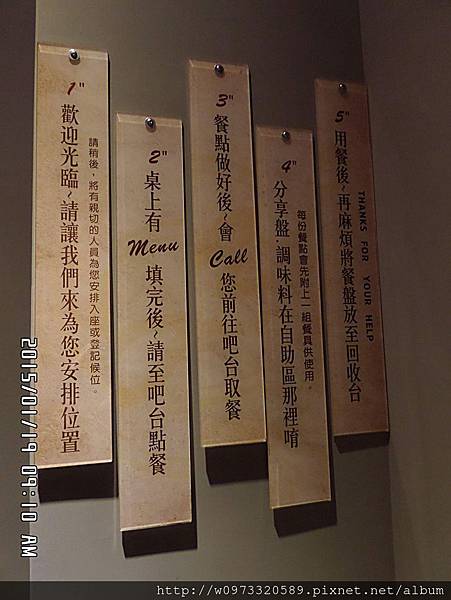 1"
歡迎光臨~請讓我們來為您安排位置
請稍後，將有親切的人員為您安排入座或登記候位。
2"
桌上有Menu填完後，請至吧台點餐
3"
餐點做好後~會Call您前往吧台取餐
4"
分享盤.調味料在自助區那裡唷
每份餐點會先附上一組餐具供使用。
5"
用餐後~再麻煩將餐盤放至回收台
THANKS FOR YOUR HELP
2015/01/19 09:10 AM
http://w0973320589.pixnet.net/album